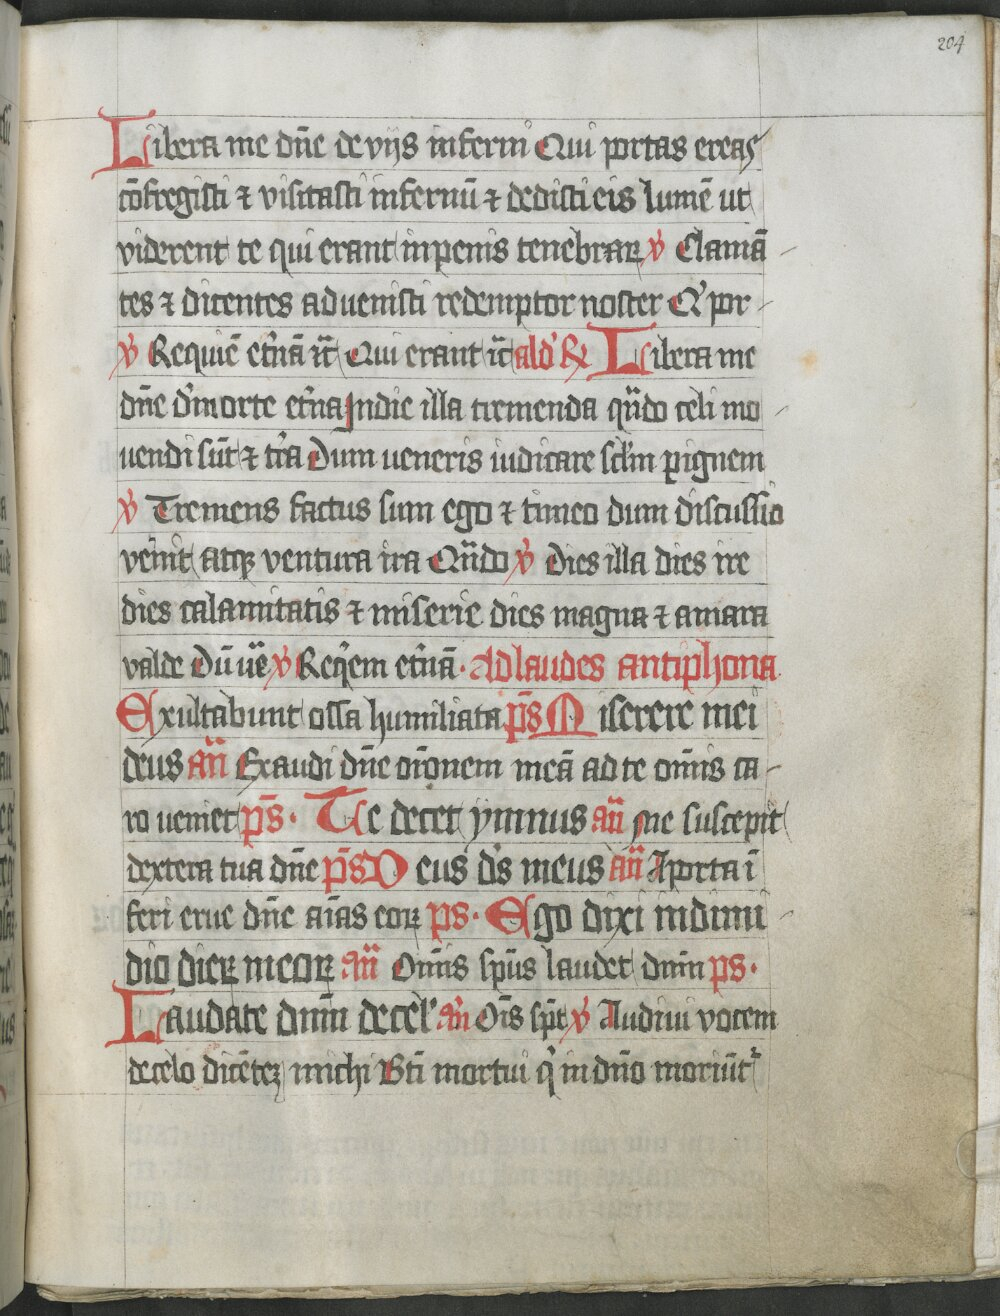 204
Libera me dn̄e de vijs inferni Qui portas ereas
cōfregisti ⁊ visitasti infernū ⁊ dedisti eis lumē ut
viderent te qui erant in penis tenebraꝝ ℣ Clamā
tes ⁊ dicentes advenisti redemptor noster Q' por
℣ Requiē et̄nā ic̄ Qui erant ic̄ ald' ℟ Libera me
dn̄e d' morte et̄na Jn die illa tremenda qn̄do celi mo
uendi sūt ⁊ t'ra Dum ueneris iudicare sc̄lm p ignem
℣ Tremens factus sum ego ⁊ timeo dum discussio
ven'it atqꝫ ventura ira Qn̄do ℣ Dies illa dies ire
dies calamitatis ⁊ miserie dies magna ⁊ amara
valde Dū uē ℣ Req'em et̄nā · Ad laudes antiphona
Exultabunt ossa humiliata p̄s Miserere mei
deus an̄ Exaudi dn̄e or̄onem meā ad te om̄is ca
ro ueniet p̄s · Te decet ymnus an̄ Me suscepit
dextera tua dn̄e p̄s Deus ds̄ meus an̄ A porta ī
feri erue dn̄e aīas eoꝝ ps · Ego dixi in dimi
dio dieꝝ meoꝝ an̄ Om̄is sp̄us laudet dnm̄ ps ·
Laudate dnm̄ de cel' an̄ Oīs sp̄t ℣ Audiui vocem
de celo dicēteꝫ michi Bt̄i mortui q' in dn̄o moriūt'